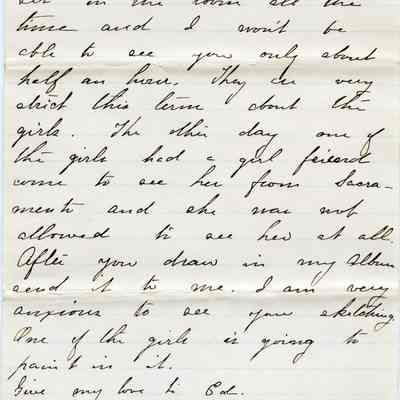 in the room all the
time and I won't be
able to see you only about
half an hour. They are very
strict this term about the
girls. The other day one of
the girls had a girl friend
come to see her from Sacra-
mento and she was not
allowed to see her at all.
After you draw in my album
send it to me. I am very
anxious to see your sketching
One of the girls is going to
paint in it.
Give my love to Ed.